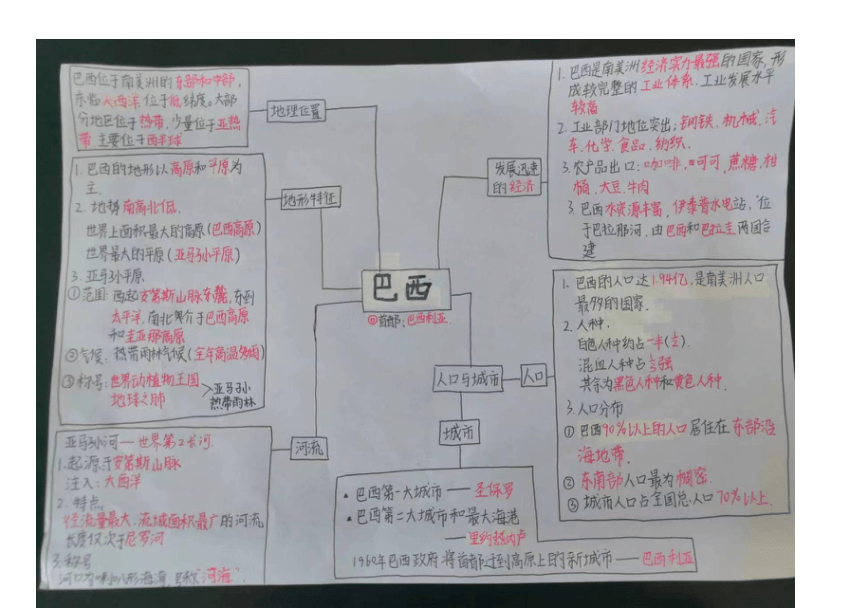 巴西位于南美洲的东部和中部,
东临大西洋,位于低纬度。大部
分地区位于热带,少量位于亚热
带 主要位于西半球
地理位置
1. 巴西的地形以高原和平原为
主.
2. 地势南高北低.
世界上面积最大的高原(巴西高原)
世界最大的平原(亚马孙平原)
3. 亚马孙平原
①范围: 西起安第斯山脉东麓,东到
太平洋. 南北界介于巴西高原
和圭亚那高原
②气候: 热带雨林气候(全年高温多雨)
③称号: 世界动植物王国
地球之肺
>亚马孙
热带雨林
地形特征
亚马孙河—世界第2长河.
1.起源于安第斯山脉
注入:大西洋
2. 特点
径流量最大、流域面积最广的河流
长度仅次于尼罗河
3.称号
河口有喇叭形海湾,号称"河海".
河流
巴西
◎首都:巴西利亚.
发展迅速
的经济
1. 巴西是南美洲经济实力最强的国家,形
成较完整的工业体系.工业发展水平
较高
2. 工业部门地位突出:钢铁.机械.汽
车.化学.食品.纺织.
3.农产品出口:咖啡.可可.蔗糖.柑
橘.大豆.牛肉
3. 巴西水资源丰富,伊泰普水电站,位
于巴拉那河.由巴西和巴拉圭两国合
建
人口与城市
人口
1. 巴西的人口达1.94亿,是南美洲人口
最多的国家.
2. 人种.
白色人种约占一半(½).
混血人种占⅓强
其余为黑色人种和黄色人种.
3.人口分布
① 巴西90%以上的人口居住在东部沿
海地带.
② 东南部人口最为稠密.
③ 城市人口占全国总人口70%以上.
城市
▲巴西第一大城市——圣保罗
▲巴西第二大城市和最大海港
——里约热内卢
1960年巴西政府将首都迁到高原上的新城市——巴西利亚